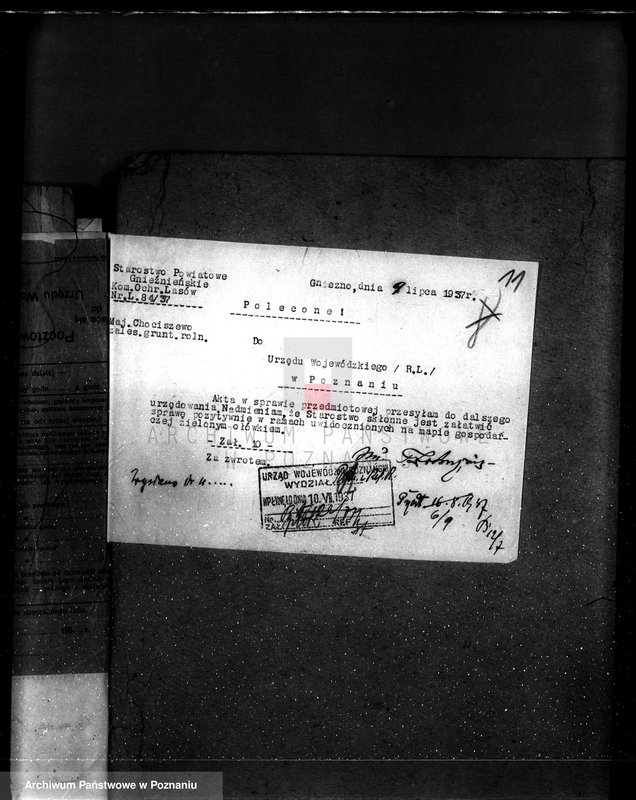 11
Starostwo Powiatowe
Gnieźnieńskie
Kom.Ochr.Lasów
Nr.L.84/37
Gniezno,dnia 9 lipca 1937r.
Polecone!
Maj.Chociszewo
zales.grunt.roln.
Do
Urzędu Wojewódzkiego /R.L./
w Poznaniu
Akta w sprawie przedmiotowej przesyłam do dalszego
urzędowania.Nadmieniam,że Starostwo skłonne jest załatwić
sprawę pozytywnie w ramach uwidocznionych na mapie gospodar-
czej zielonym ołówkiem.
Zał. 10 -
Za zwrotem.
URZĄD WOJEWÓDZKI POZNAŃSKI
WYDZIAŁ
WPŁYNĘŁO DNIA 10.VII.1937
Nr.
ZAŁ. REF.
6/9
12/7
ARCHIWUM PAŃSTWOWE
W POZNANIU
Pocztow
Urzędu Wo
Archiwum Państwowe w Poznaniu